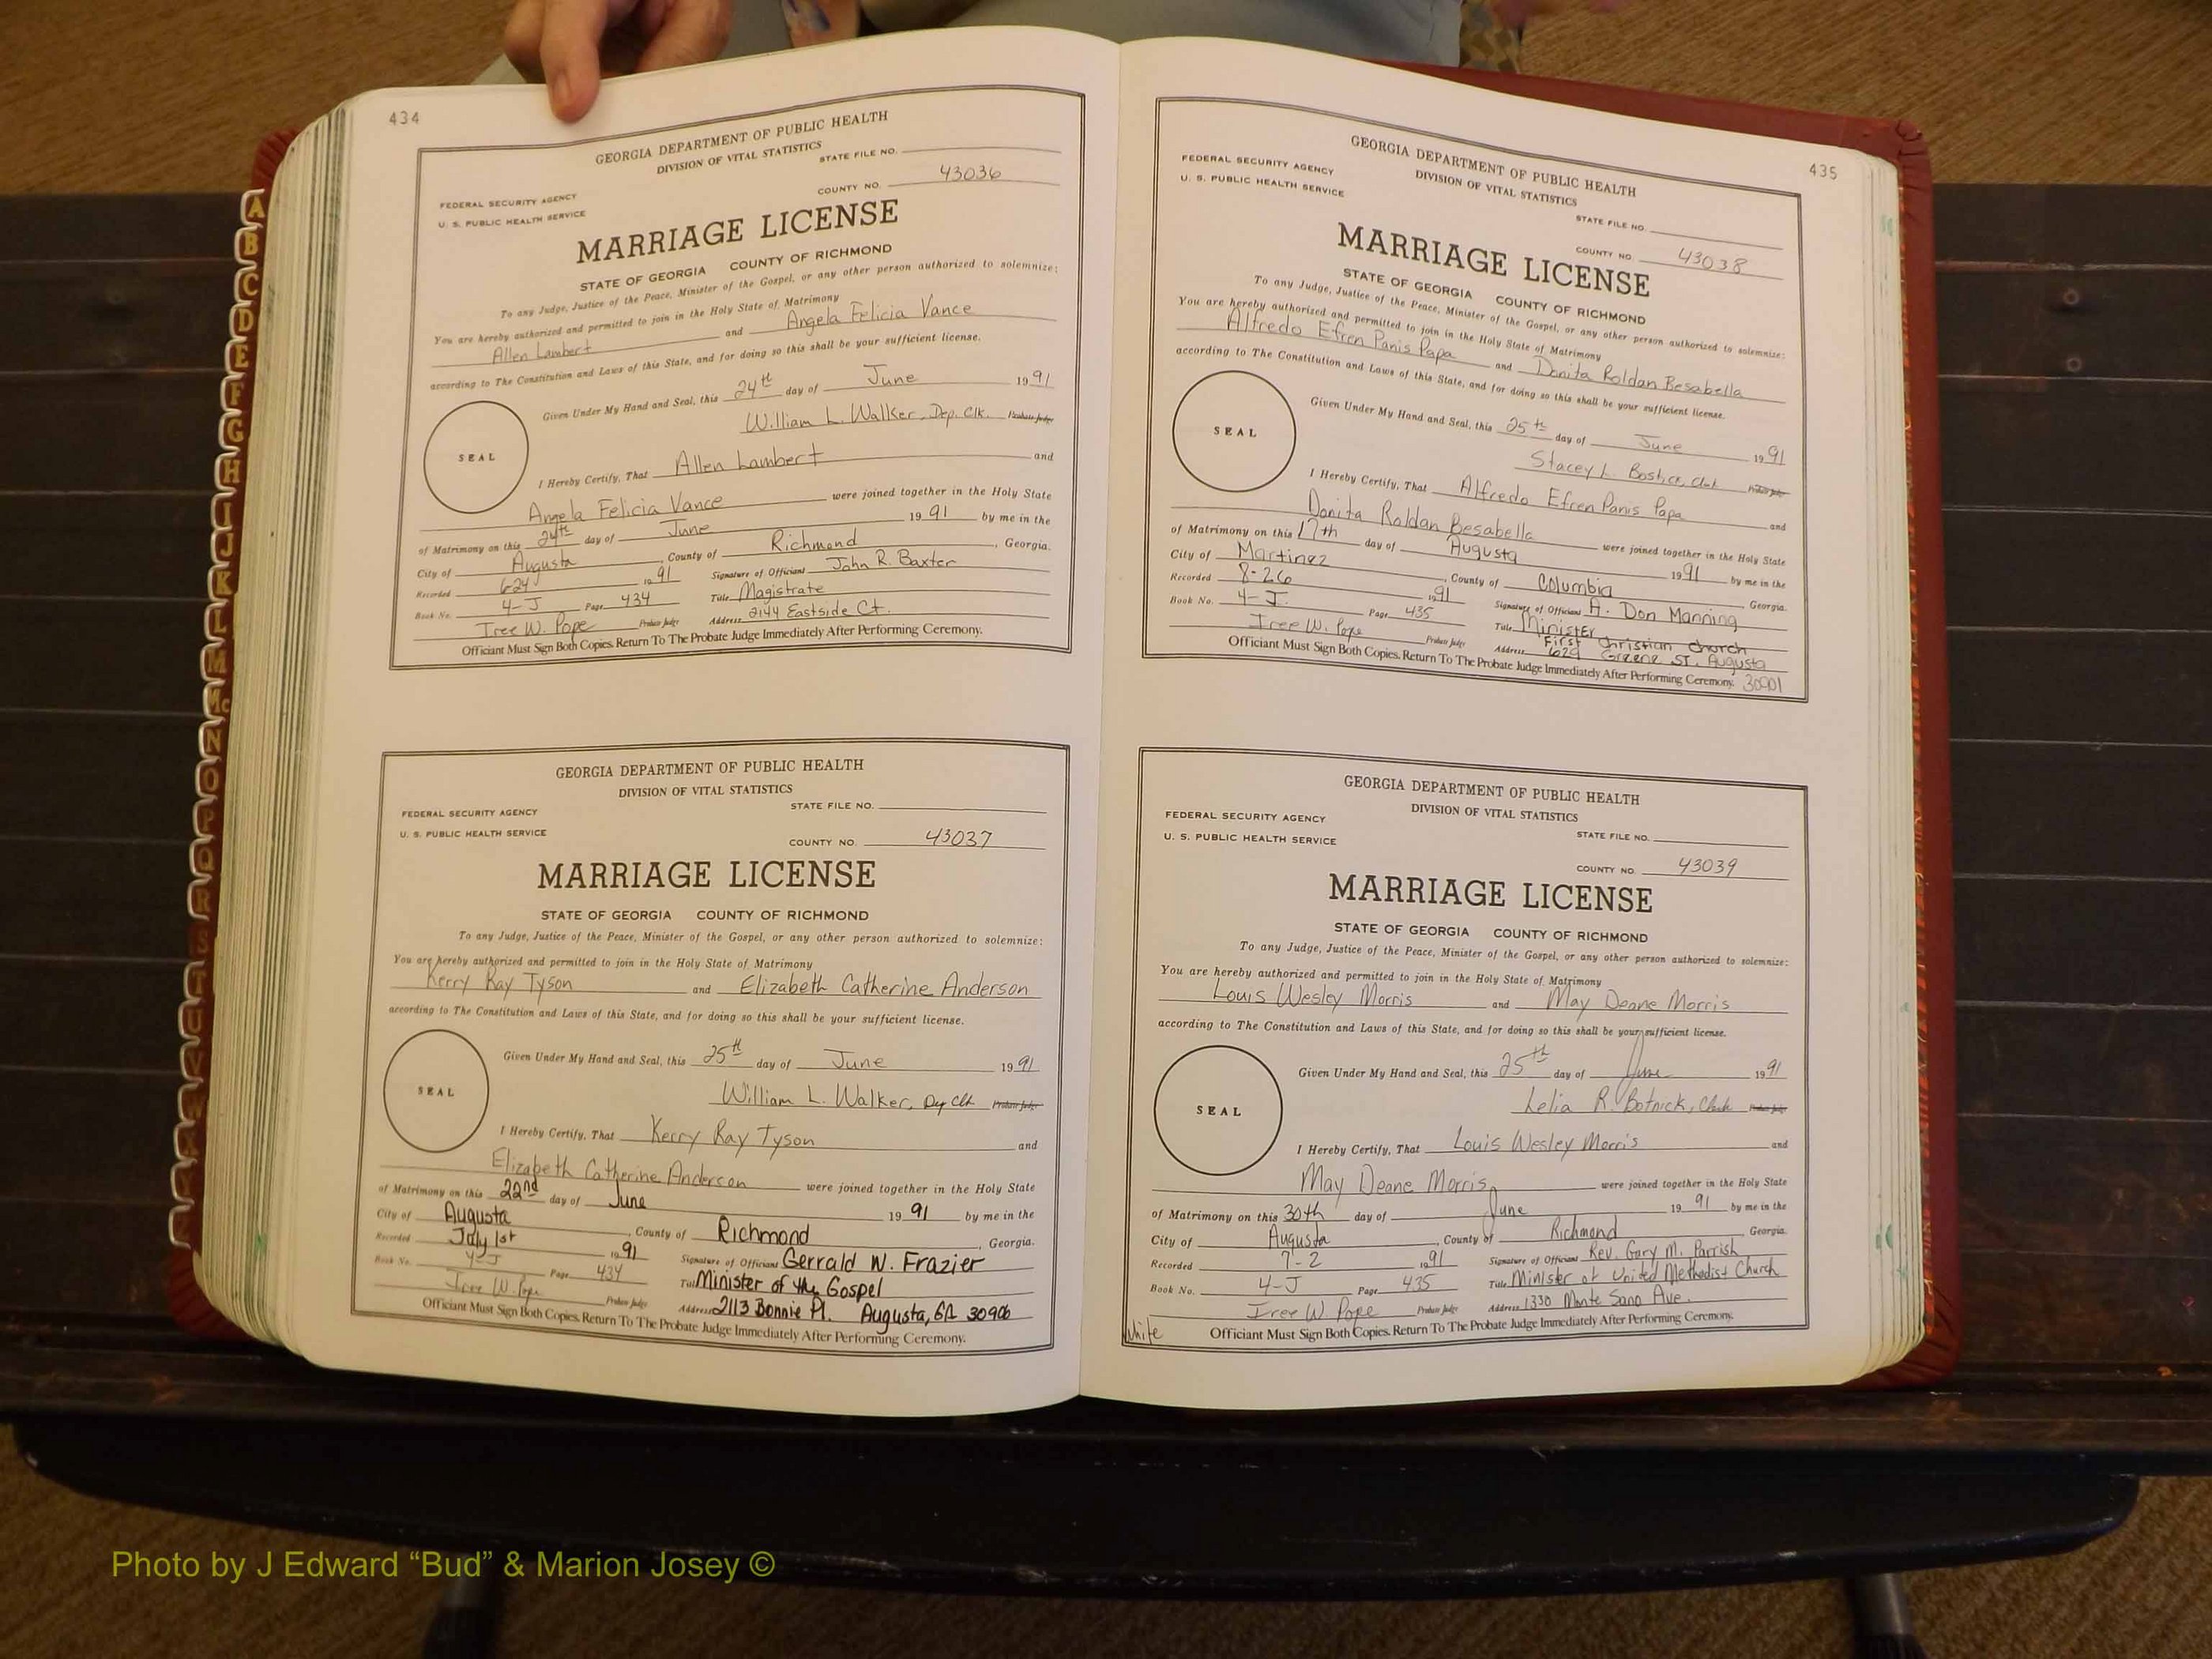 434
GEORGIA DEPARTMENT OF PUBLIC HEALTH
DIVISION OF VITAL STATISTICS
STATE FILE NO.
FEDERAL SECURITY AGENCY
COUNTY NO. 43036
U. S. PUBLIC HEALTH SERVICE
MARRIAGE LICENSE
STATE OF GEORGIA COUNTY OF RICHMOND
To any Judge, Justice of the Peace, Minister of the Gospel, or any other person authorized to solemnize:
You are hereby authorized and permitted to join in the Holy State of Matrimony
Allen Lambert and Angela Felicia Vance
according to The Constitution and Laws of this State, and for doing so this shall be your sufficient license.
Given Under My Hand and Seal, this 24th day of June 1991
William L. Walker, Dep. Clk. Probate Judge
SEAL
I Hereby Certify, That Allen Lambert and
Angela Felicia Vance were joined together in the Holy State
of Matrimony on this 24th day of June 1991 by me in the
City of Augusta, County of Richmond, Georgia.
Recorded 6-24 1991 Signature of Officiant John R. Baxter
Book No. 4-J Page 434 Title Magistrate
Iree W. Pope Probate Judge Address 2144 Eastside Ct.
Officiant Must Sign Both Copies. Return To The Probate Judge Immediately After Performing Ceremony.
GEORGIA DEPARTMENT OF PUBLIC HEALTH
DIVISION OF VITAL STATISTICS
FEDERAL SECURITY AGENCY STATE FILE NO.
U. S. PUBLIC HEALTH SERVICE
COUNTY NO. 43037
MARRIAGE LICENSE
STATE OF GEORGIA COUNTY OF RICHMOND
To any Judge, Justice of the Peace, Minister of the Gospel, or any other person authorized to solemnize:
You are hereby authorized and permitted to join in the Holy State of Matrimony
Kerry Ray Tyson and Elizabeth Catherine Anderson
according to The Constitution and Laws of this State, and for doing so this shall be your sufficient license.
Given Under My Hand and Seal, this 25th day of June 1991
William L. Walker, Dep Clk Probate Judge
SEAL
I Hereby Certify, That Kerry Ray Tyson and
Elizabeth Catherine Anderson were joined together in the Holy State
of Matrimony on this 22nd day of June 1991 by me in the
City of Augusta, County of Richmond, Georgia.
Recorded July 1st 1991 Signature of Officiant Gerrald W. Frazier
Book No. 4-J Page 434 Title Minister of the Gospel
Iree W. Pope Probate Judge Address 2113 Bonnie Pl. Augusta, GA 30906
Officiant Must Sign Both Copies. Return To The Probate Judge Immediately After Performing Ceremony.
435
GEORGIA DEPARTMENT OF PUBLIC HEALTH
DIVISION OF VITAL STATISTICS
FEDERAL SECURITY AGENCY
U. S. PUBLIC HEALTH SERVICE
STATE FILE NO.
COUNTY NO. 43038
MARRIAGE LICENSE
STATE OF GEORGIA COUNTY OF RICHMOND
To any Judge, Justice of the Peace, Minister of the Gospel, or any other person authorized to solemnize:
You are hereby authorized and permitted to join in the Holy State of Matrimony
Alfredo Efren Panis Papa and Donita Roldan Besabella
according to The Constitution and Laws of this State, and for doing so this shall be your sufficient license.
Given Under My Hand and Seal, this 25th day of June 1991
Stacey L. Bostick, Clerk Probate Judge
SEAL
I Hereby Certify, That Alfredo Efren Panis Papa and
Donita Roldan Besabella were joined together in the Holy State
of Matrimony on this 17th day of Augusta 1991 by me in the
City of Martinez, County of Columbia Georgia.
Recorded 8-26 1991 Signature of Officiant A. Don Manning
Book No. 4-J. Page 435 Title Minister
First Christian Church
Iree W. Pope Probate Judge Address 629 Greene St. Augusta
Officiant Must Sign Both Copies. Return To The Probate Judge Immediately After Performing Ceremony. 30901
GEORGIA DEPARTMENT OF PUBLIC HEALTH
DIVISION OF VITAL STATISTICS
FEDERAL SECURITY AGENCY
U. S. PUBLIC HEALTH SERVICE
STATE FILE NO.
COUNTY NO. 43039
MARRIAGE LICENSE
STATE OF GEORGIA COUNTY OF RICHMOND
To any Judge, Justice of the Peace, Minister of the Gospel, or any other person authorized to solemnize:
You are hereby authorized and permitted to join in the Holy State of Matrimony
Louis Wesley Morris and May Deane Morris
according to The Constitution and Laws of this State, and for doing so this shall be your sufficient license.
Given Under My Hand and Seal, this 25th day of June 1991
Lelia R. Botnick, Clerk Probate Judge
SEAL
I Hereby Certify, That Louis Wesley Morris and
May Deane Morris were joined together in the Holy State
of Matrimony on this 30th day of June 1991 by me in the
City of Augusta, County of Richmond Georgia.
Recorded 7-2 1991 Signature of Officiant Rev. Gary M. Parrish
Book No. 4-J Page 435 Title Minister of United Methodist Church
Iree W. Pope Probate Judge Address 1330 Monte Sano Ave.
White Officiant Must Sign Both Copies. Return To The Probate Judge Immediately After Performing Ceremony.
A
B
C
D
E
F
G
H
I
J
K
L
M
Mc
N
O
P
Q
R
S
T
U
V
W
Photo by J Edward “Bud” & Marion Josey ©